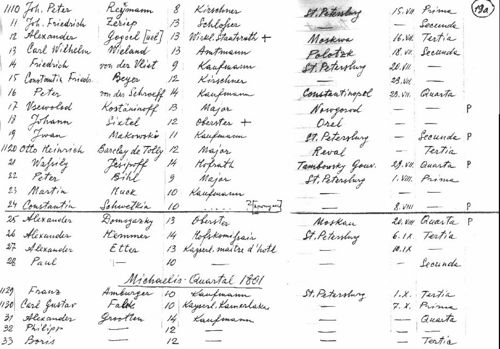 13a
1110 Joh. Peter Reymann 8 Kirschner St. Petersburg 15. VII Prima
11 Joh. Friedrich Zeriep 13 Schlosser — — Secunda
12 Alexander Gogeel 13 Wirkl. Staatsrath + Moskwa 16. VII. Tertia
13 Carl Wilhelm Wieland 13 Amtmann Polotzk 18. VII. Secunda
14 Friedrich von der Vliet 9 Kaufmann St. Petersburg 20. VII —
15 Constantin Fried. Beyer 12 Kirschner — 23. VII —
16 Peter von der Schroeff 14 Kaufmann Constantinopel 23. VII. Quarta
17 Wsewolod Kostäninoff 13 Major Nowgorod — — P
18 Johann Sietel 12 Oberster + Orel — —
19 Iwan Makowski 11 Kaufmann St. Petersburg — Secunda P
1120 Otto Heinrich Barclay de Tolly 12 Major Reval — Tertia
21 Wassily Jesipoff 14 Hofrath Tambowsky Gouv. 29. VII Quarta P
22 Peter Bihl 9 Major St. Petersburg 1. VIII Prima
23 Martin Huck 10 Kaufmann — — —
24 Constantin Schwetkin 10 ..... — 8. VIII — P
25 Alexander Domogazky 13 Oberster Moskau 20. VIII Quarta P
26 Alexander Hemmer 14 St. Petersburg 6. IX Tertia
27 Alexander Etter 13 Kayserl. maitre d'hotel — 10. IX
28 Paul — 10 — — — Secunda
Michaelis-Quartal 1801
1129 Franz Amburger 10 Kaufmann St. Petersburg 1. X. Tertia
1130 Carl Gustav Falk 10 Kayserl. — 7. X. Prima
31 Alexander Grooten 14 Kaufmann — — Quarta
32 Philipp — 12 — — — —
33 Boris — 12 — — — Tertia